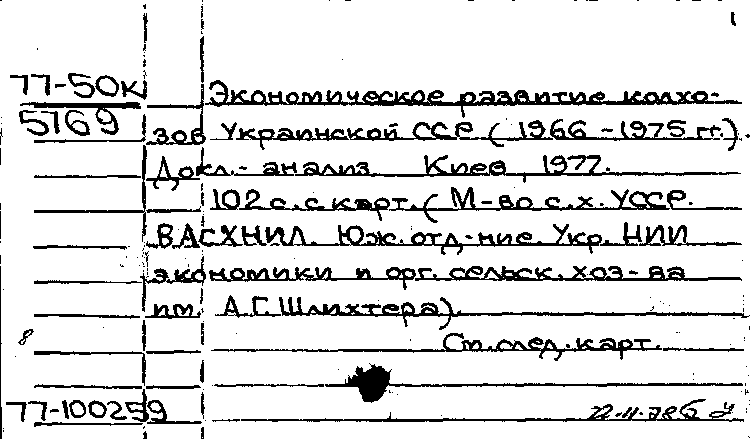 1
77-50к
5769
Экономическое развитие колхо-
зов Украинской ССР (1966-1975 гг.).
Докл.- анализ. Киев, 1977.
102 с. с карт. (М-во с.х. УССР.
ВАСХНИЛ. Юж. отд-ние. Укр. НИИ
экономики и орг. сельск. хоз-ва
им. А.Г. Шлихтера).
8
См. след. карт.
77-100259